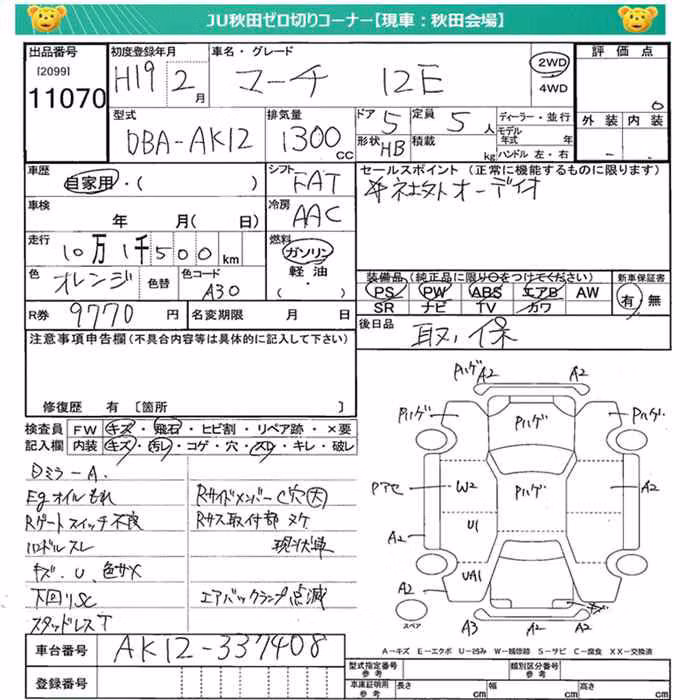 JU秋田ゼロ切りコーナー【現車：秋田会場】
出品番号
[2099]
11070
初度登録年月
H19 2月
車名・グレード
マーチ 12E
2WD
4WD
評価点
0
外装 内装
型式
DBA-AK12
排気量
1300CC
ドア 5
定員 5人
形状 HB
積載 kg
ディーラー・並行
モデル年式 年
ハンドル 左・右
車歴
自家用・( )
シフト
FAT
セールスポイント (正常に機能するものに限ります)
社外オーディオ
車検
年 月( 日)
冷房
AAC
走行
10万1千500km
燃料
ガソリン
軽油・
( )
色
オレンジ
色替
色コード
A30
装備品(純正品に限り○をつけてください)
PS PW ABS エアB AW
SR ナビ TV カワ
新車保証書
有/無
R券 9770円
名変期限 月 日
後日品
取、保
注意事項申告欄(不具合内容等は具体的に記入して下さい)
修復歴 有 [箇所 ]
検査員記入欄
FW キズ・飛石・ヒビ割・リペア跡・×要
内装 キズ・汚レ・コゲ・穴・スレ・キレ・破レ
Dミラ-A.
Egオイルもれ
Rゲートスイッチ不良
ハンドルスレ
キズ.U、色サメ
下回りSC
スタッドレスT
RサイドメンバーC穴(大)
Rサス取付部ヌケ
現状車
エアバックランプ点滅
Pハゲ A2 A2
Pハゲ Pハゲ Pハゲ
Pアセ W2 Pハゲ A2
U1
A2
UA1
A2 キズ
スペア A3 A2 A2
A-キズ E-エクボ U-凹み W-補修跡 S-サビ C-腐食 XX-交換済
車台番号
AK12-337408
登録番号
型式指定番号 参考
類別区分番号 参考
車庫証明用 参考
長さ cm
幅 cm
高さ cm